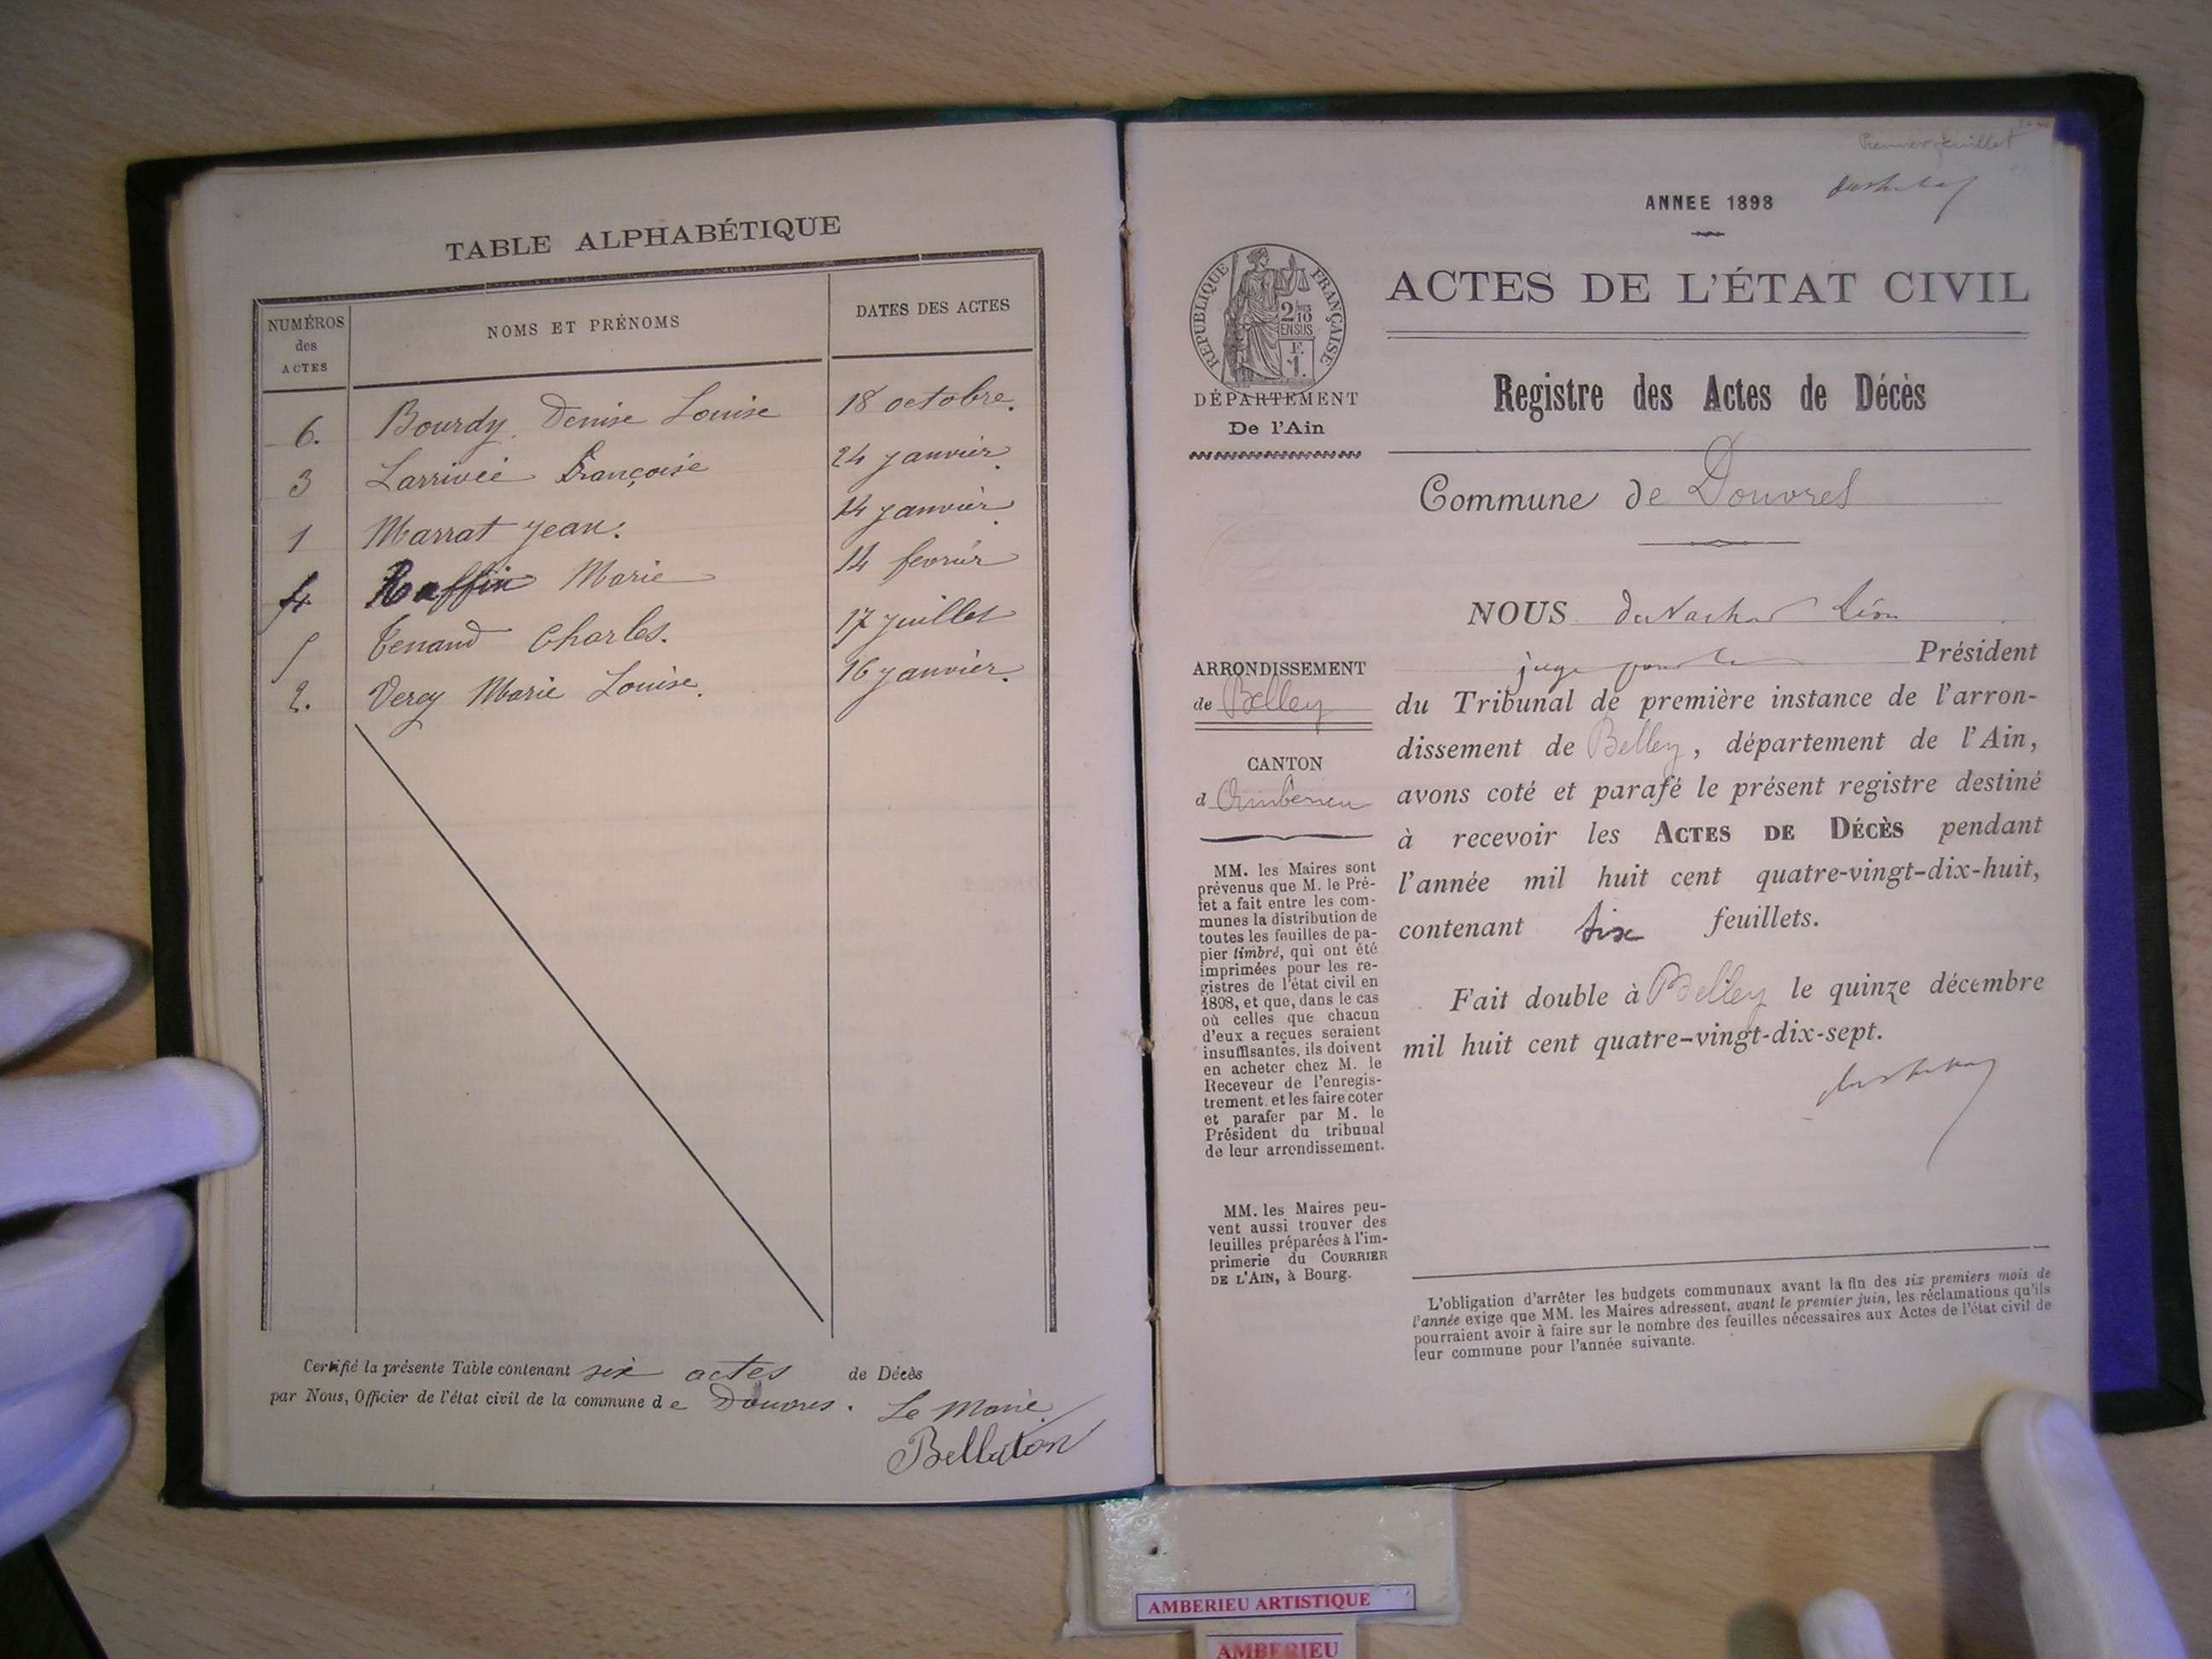 TABLE ALPHABÉTIQUE
NUMÉROS des ACTES
NOMS ET PRÉNOMS
DATES DES ACTES
6. Bourdy Denise Louise 18 octobre.
3 Larrivée Françoise 24 janvier.
1 Marrat Jean. 14 janvier.
4 Raffin Marie 14 fevrier
5 Tenand Charles. 17 juillet
2. Vercy Marie Louise. 16 janvier.
Certifié la présente Table contenant six actes de Décès
par Nous, Officier de l'état civil de la commune de Douvres. Le Maire
Bellaton
Premier feuillet
ANNEE 1898
RÉPUBLIQUE FRANÇAISE
2/10 EN SUS
F. 1.
DÉPARTEMENT
De l'Ain
ACTES DE L'ÉTAT CIVIL
Registre des Actes de Décès
Commune de Douvres
ARRONDISSEMENT
de Belley
CANTON
d Ambérieu
MM. les Maires sont
prévenus que M. le Pré-
fet a fait entre les com-
munes la distribution de
toutes les feuilles de pa-
pier timbré, qui ont été
imprimées pour les re-
gistres de l'état civil en
1898, et que, dans le cas
où celles que chacun
d'eux a reçues seraient
insuffisantes, ils doivent
en acheter chez M. le
Receveur de l'enregis-
trement, et les faire coter
et parafer par M. le
Président du tribunal
de leur arrondissement.
MM. les Maires peu-
vent aussi trouver des
feuilles préparées à l'im-
primerie du COURRIER
DE L'AIN, à Bourg.
NOUS Léon
juge pour le Président
du Tribunal de première instance de l'arron-
dissement de Belley, département de l'Ain,
avons coté et parafé le présent registre destiné
à recevoir les ACTES DE DÉCÈS pendant
l'année mil huit cent quatre-vingt-dix-huit,
contenant six feuillets.
Fait double à Belley le quinze décembre
mil huit cent quatre-vingt-dix-sept.
L'obligation d'arrêter les budgets communaux avant la fin des six premiers mois de
l'année exige que MM. les Maires adressent, avant le premier juin, les réclamations qu'ils
pourraient avoir à faire sur le nombre des feuilles nécessaires aux Actes de l'état civil de
leur commune pour l'année suivante.
AMBERIEU ARTISTIQUE
AMBERIEU